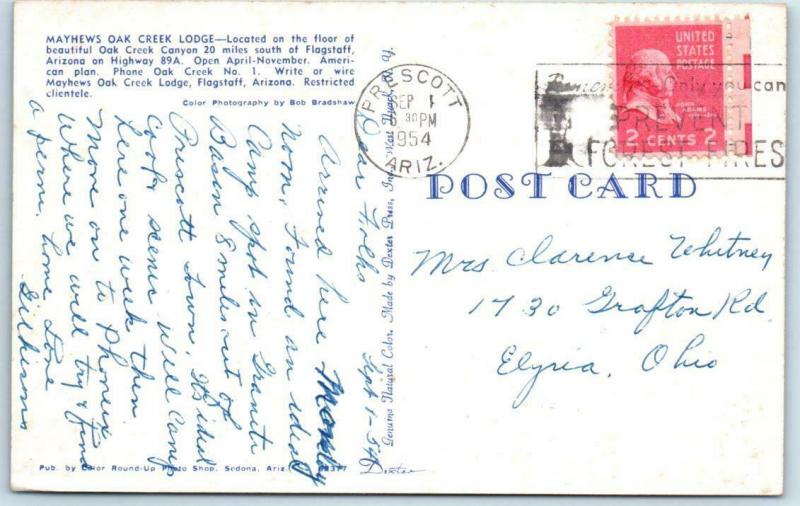 MAYHEWS OAK CREEK LODGE—Located on the floor of
beautiful Oak Creek Canyon 20 miles south of Flagstaff,
Arizona on Highway 89A. Open April-November. Ameri-
can plan. Phone Oak Creek No. 1. Write or wire
Mayhews Oak Creek Lodge, Flagstaff, Arizona. Restricted
clientele.
Color Photography by Bob Bradshaw
Sept 1-54
Dear Folks
Arrived here Monday
Noon, Found an ideal
Camp spot in Granite
Basin 8 miles out of
Prescott town, It's ideal
Cool & scenic Will Camp
here one week then
Move on to Phoneix
Where we will try & find
a perm. home Love
Gilkisons
Pub. by Color Round-Up Photo Shop, Sedona, Ariz.
Genuine Natural Color. Made by Dexter Press, Inc., West Nyack, N. Y.
Dexter
PRESCOTT
SEP 1
30 PM
1954
ARIZ.
Only you can
PREVENT
FOREST FIRES
UNITED
STATES
POSTAGE
JOHN
ADAMS
2 CENTS 2
POST CARD
Mrs. Clarence Whitney
1730 Grafton Rd.
Elyria, Ohio